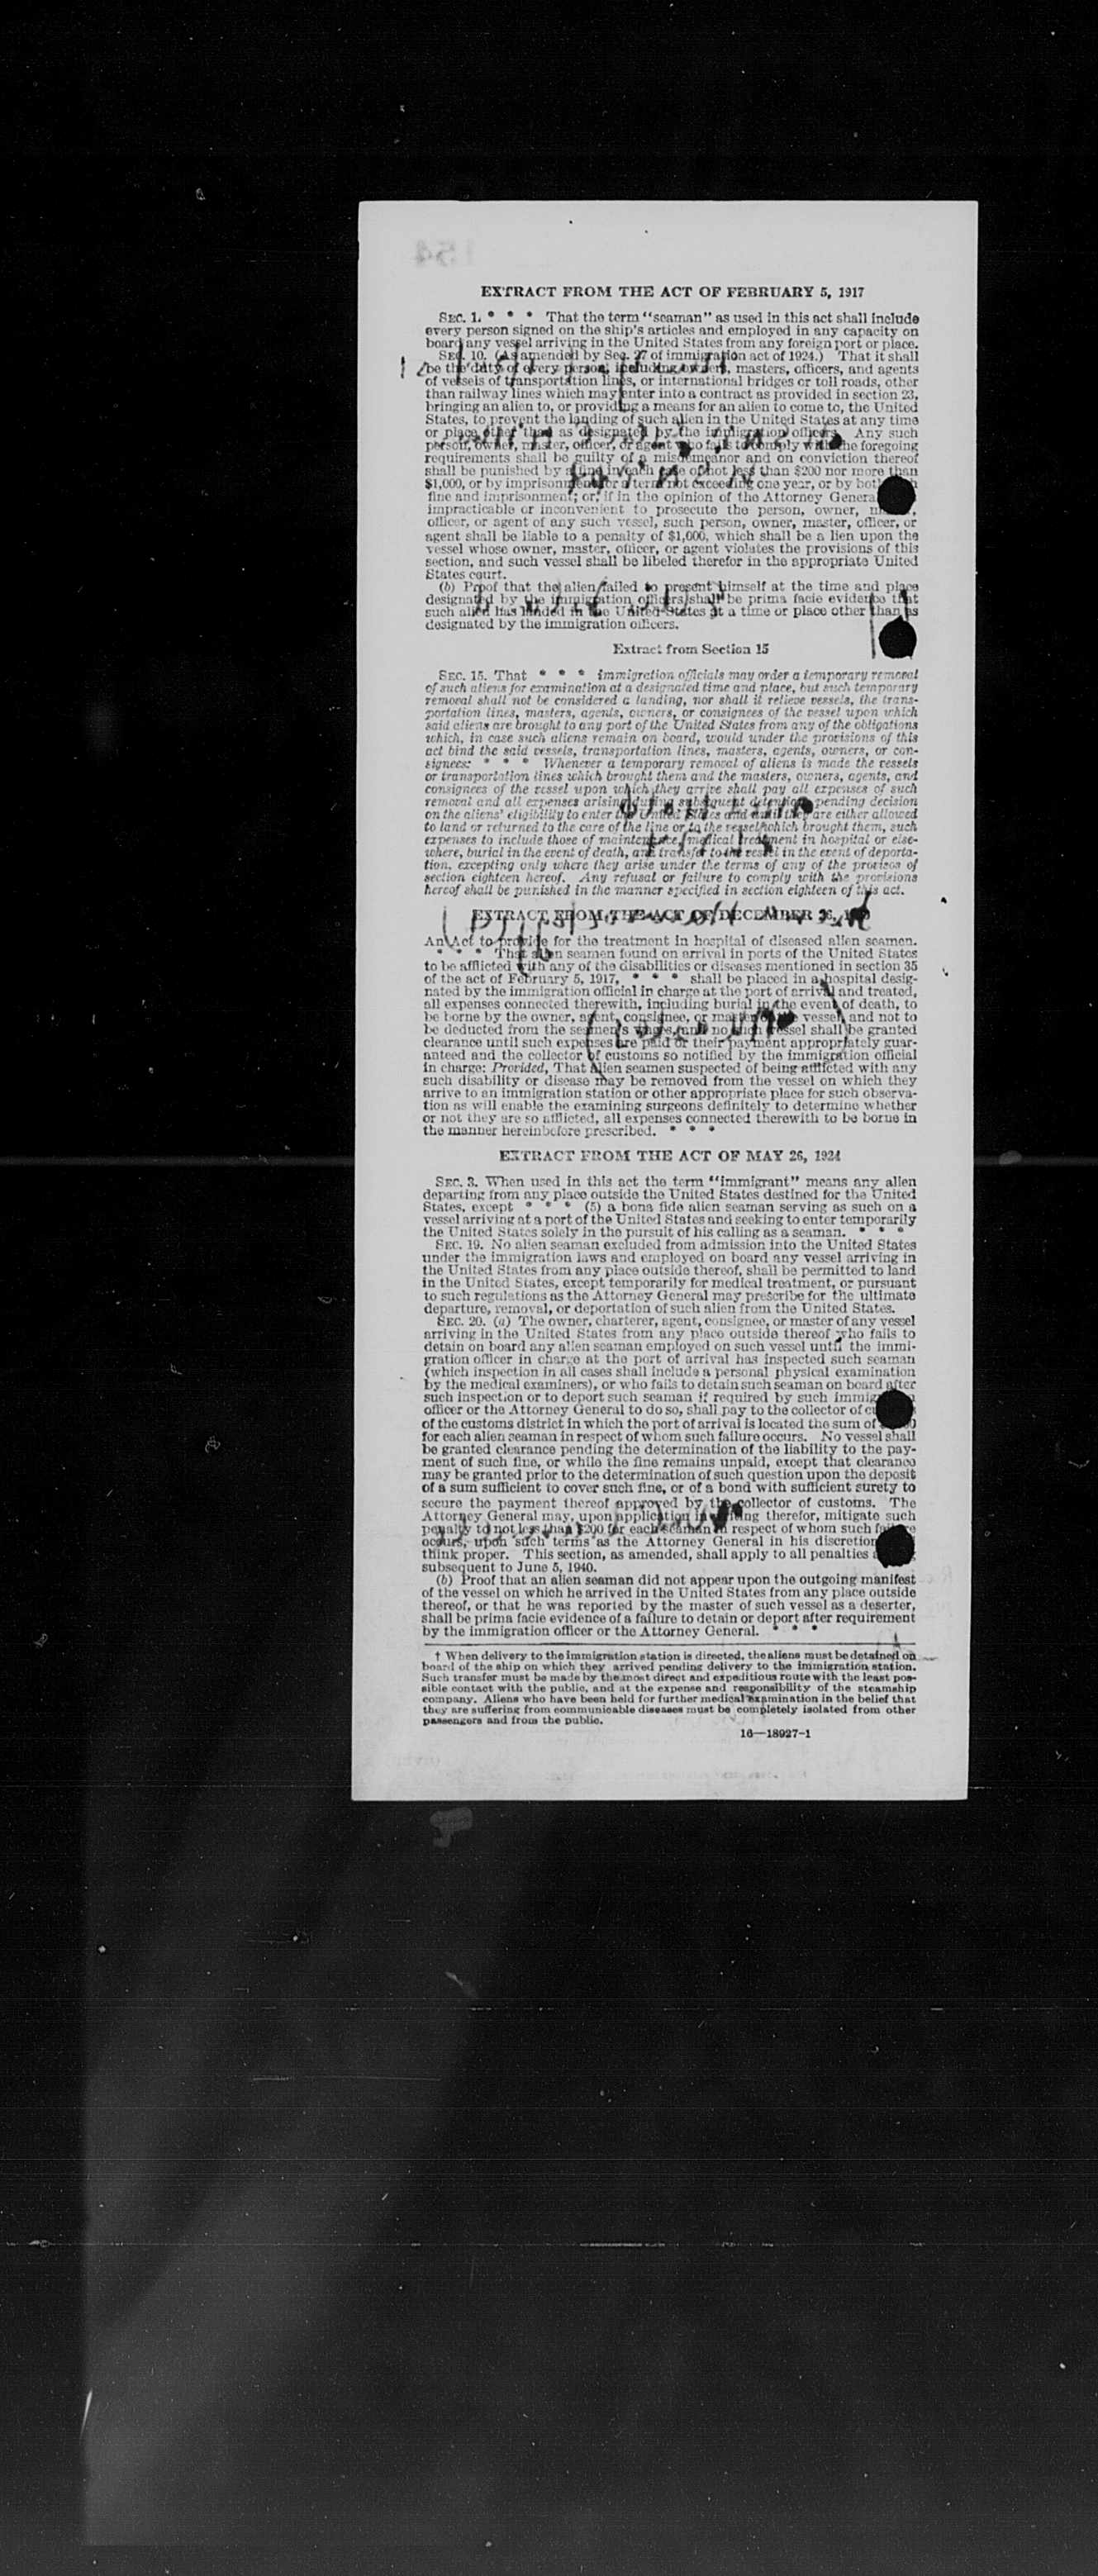 EXTRACT FROM THE ACT OF FEBRUARY 5, 1917
SEC. 1. * * * That the term "seaman" as used in this act shall include
every person signed on the ship's articles and employed in any capacity on
board any vessel arriving in the United States from any foreign port or place.
SEC. 10. (As amended by Sec. 27 of immigration act of 1924.) That it shall
be the duty of every person, including owners, masters, officers, and agents
of vessels of transportation lines, or international bridges or toll roads, other
than railway lines which may enter into a contract as provided in section 23,
bringing an alien to, or providing a means for an alien to come to, the United
States, to prevent the landing of such alien in the United States at any time
or place other than as designated by the immigration officers. Any such
person, owner, master, officer, or agent who fails to comply with the foregoing
requirements shall be guilty of a misdemeanor and on conviction thereof
shall be punished by a fine in each case of not less than $200 nor more than
$1,000, or by imprisonment for a term not exceeding one year, or by both
fine and imprisonment; or, if in the opinion of the Attorney General
impracticable or inconvenient to prosecute the person, owner,
officer, or agent of any such vessel, such person, owner, master, officer, or
agent shall be liable to a penalty of $1,000, which shall be a lien upon the
vessel whose owner, master, officer, or agent violates the provisions of this
section, and such vessel shall be libeled therefor in the appropriate United
States court.
(b) Proof that the alien failed to present himself at the time and place
designated by the immigration officers shall be prima facie evidence that
such alien has landed in the United States at a time or place other than as
designated by the immigration officers.
Extract from Section 15
SEC. 15. That * * * immigration officials may order a temporary removal
of such aliens for examination at a designated time and place, but such temporary
removal shall not be considered a landing, nor shall it relieve vessels, the trans-
portation lines, masters, agents, owners, or consignees of the vessel upon which
said aliens are brought to any port of the United States from any of the obligations
which, in case such aliens remain on board, would under the provisions of this
act bind the said vessels, transportation lines, masters, agents, owners, or con-
signees: * * * Whenever a temporary removal of aliens is made the vessels
or transportation lines which brought them and the masters, owners, agents, and
consignees of the vessel upon which they arrive shall pay all expenses of such
removal and all expenses arising during subsequent detention, pending decision
on the aliens' eligibility to enter the United States and until they are either allowed
to land or returned to the care of the line or to the vessel which brought them, such
expenses to include those of maintenance, medical treatment in hospital or else-
where, burial in the event of death, and transfer to the vessel in the event of deporta-
tion, excepting only where they arise under the terms of any of the provisos of
section eighteen hereof. Any refusal or failure to comply with the provisions
hereof shall be punished in the manner specified in section eighteen of this act.
EXTRACT FROM THE ACT OF DECEMBER 26,
An Act to provide for the treatment in hospital of diseased alien seamen.
* * * That alien seamen found on arrival in ports of the United States
to be afflicted with any of the disabilities or diseases mentioned in section 35
of the act of February 5, 1917, * * * shall be placed in a hospital desig-
nated by the immigration official in charge at the port of arrival and treated,
all expenses connected therewith, including burial in the event of death, to
be borne by the owner, agent, consignee, or master of the vessel, and not to
be deducted from the seamen's wages, and no such vessel shall be granted
clearance until such expenses are paid or their payment appropriately guar-
anteed and the collector of customs so notified by the immigration official
in charge: Provided, That alien seamen suspected of being afflicted with any
such disability or disease may be removed from the vessel on which they
arrive to an immigration station or other appropriate place for such observa-
tion as will enable the examining surgeons definitely to determine whether
or not they are so afflicted, all expenses connected therewith to be borne in
the manner hereinbefore prescribed. * * *
EXTRACT FROM THE ACT OF MAY 26, 1924
SEC. 3. When used in this act the term "immigrant" means any alien
departing from any place outside the United States destined for the United
States, except * * * (5) a bona fide alien seaman serving as such on a
vessel arriving at a port of the United States and seeking to enter temporarily
the United States solely in the pursuit of his calling as a seaman. * * *
SEC. 19. No alien seaman excluded from admission into the United States
under the immigration laws and employed on board any vessel arriving in
the United States from any place outside thereof, shall be permitted to land
in the United States, except temporarily for medical treatment, or pursuant
to such regulations as the Attorney General may prescribe for the ultimate
departure, removal, or deportation of such alien from the United States.
SEC. 20. (a) The owner, charterer, agent, consignee, or master of any vessel
arriving in the United States from any place outside thereof who fails to
detain on board any alien seaman employed on such vessel until the immi-
gration officer in charge at the port of arrival has inspected such seaman
(which inspection in all cases shall include a personal physical examination
by the medical examiners), or who fails to detain such seaman on board after
such inspection or to deport such seaman if required by such
officer or the Attorney General to do so, shall pay to the collector of
of the customs district in which the port of arrival is located the sum of
for each alien seaman in respect of whom such failure occurs. No vessel shall
be granted clearance pending the determination of the liability to the pay-
ment of such fine, or while the fine remains unpaid, except that clearance
may be granted prior to the determination of such question upon the deposit
of a sum sufficient to cover such fine, or of a bond with sufficient surety to
secure the payment thereof approved by the collector of customs. The
Attorney General may, upon application in writing therefor, mitigate such
penalty to not less than $200 for each seaman in respect of whom such failure
occurs, upon such terms as the Attorney General in his discretion
think proper. This section, as amended, shall apply to all penalties
subsequent to June 5, 1940.
(b) Proof that an alien seaman did not appear upon the outgoing manifest
of the vessel on which he arrived in the United States from any place outside
thereof, or that he was reported by the master of such vessel as a deserter,
shall be prima facie evidence of a failure to detain or deport after requirement
by the immigration officer or the Attorney General. * * *
† When delivery to the immigration station is directed, the aliens must be detained on
board of the ship on which they arrived pending delivery to the immigration station.
Such transfer must be made by the most direct and expeditious route with the least pos-
sible contact with the public, and at the expense and responsibility of the steamship
company. Aliens who have been held for further medical examination in the belief that
they are suffering from communicable diseases must be completely isolated from other
passengers and from the public.
16—18927-1